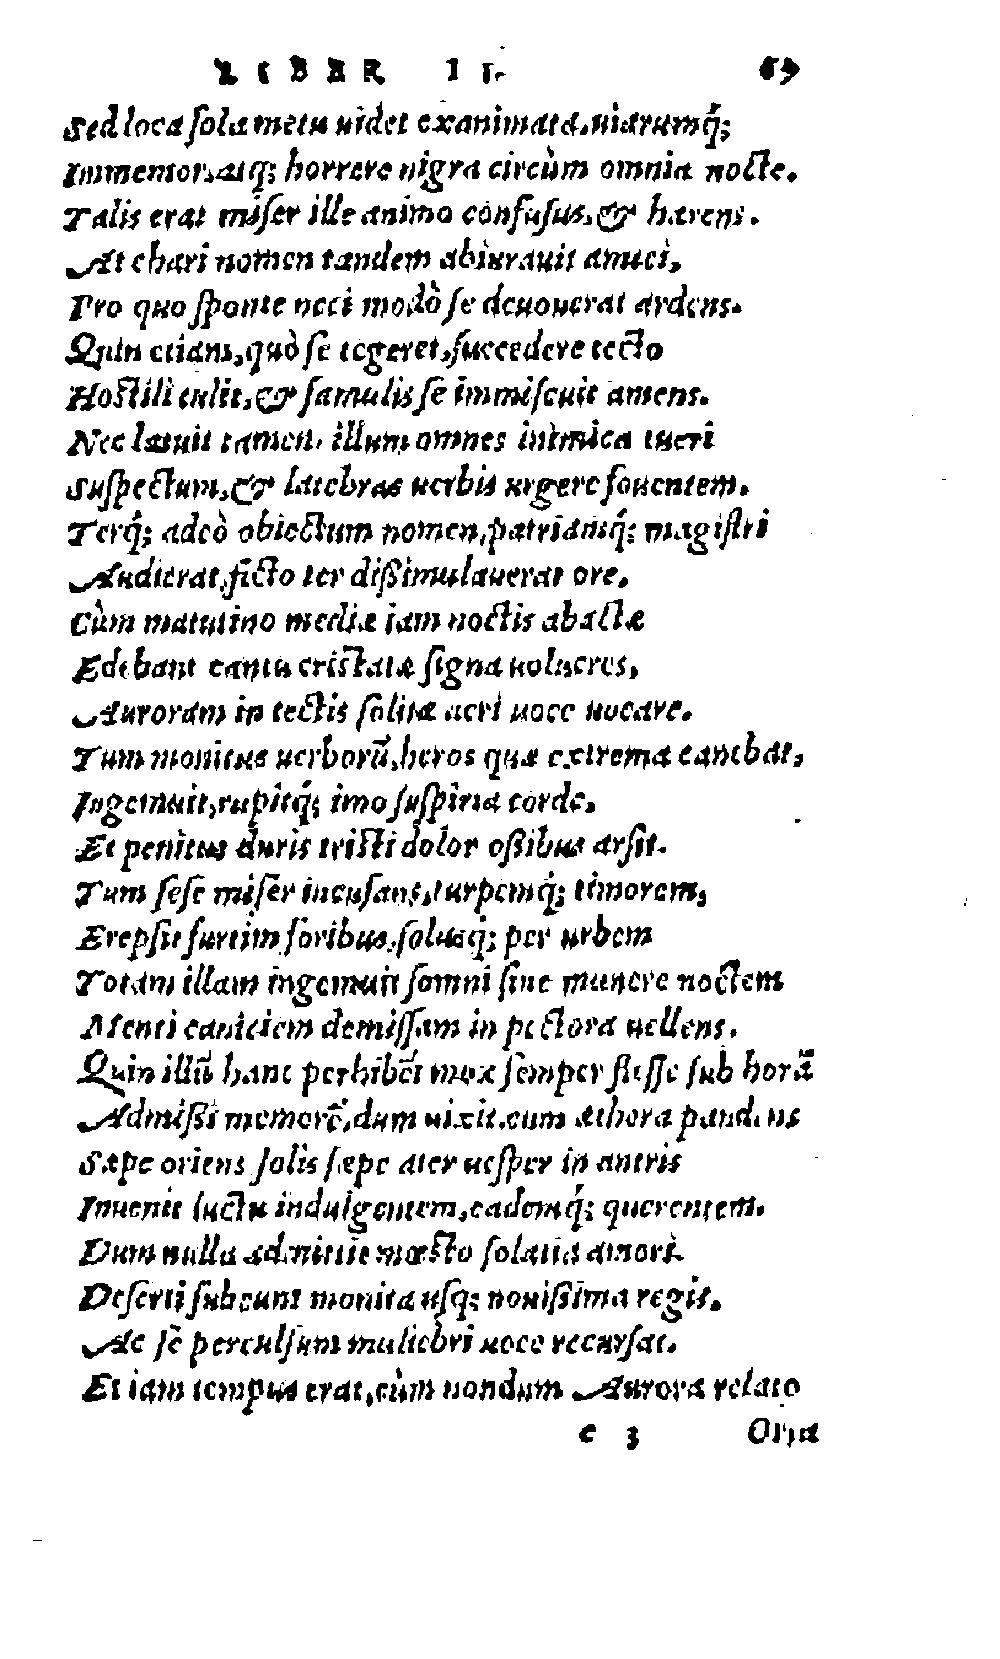 LIBER II. 69
Sed loca sola metu uidet exanimata, uiarumq́;
Immemor, atq; horrere nigra circùm omnia nocte.
Talis erat miser ille animo confusus, & hærens.
At chari nomen tandem abiurauit amici,
Pro quo sponte neci modò se deuouerat ardens.
Quin etiam, quò se tegeret, succedere tecto
Hostili tulit, & famulis se immiscuit amens.
Nec latuit tamen, illum omnes inimica tueri
Suspectum, & latebras uerbis urgere fouentem.
Terq́; adeò obiectum nomen, patriamq́; magistri
Audierat, ficto ter dißimulauerat ore.
Cùm matutino mediæ iam noctis abactæ
Edebant cantu cristatæ signa uolucres,
Auroram in tectis solitæ acri uoce uocare.
Tum monitus uerborũ, heros quæ extrema canebat,
Ingemuit, rupitq́; imo suspiria corde,
Et penitus duris tristi dolor oßibus arsit.
Tum sese miser incusans, turpemq́; timorem,
Erepsit furtim foribus, solusq́; per urbem
Totam illam ingemuit somni sine munere noctem
Menti caniciem demissam in pectora uellens.
Quin illũ hanc perhibẽt mox semper flesse sub horã
Admißi memorẽ, dum uixit, cum æthera pandens
Sæpe oriens solis sæpe ater uesper in antris
Inuenit luctu indulgentem, eademq́; querentem.
Dum nulla admittit mœsto solatia amori.
Deserti subeunt monita usq; nouißima regis.
Ac sè perculsum muliebri uoce recursat.
Et iam tempus erat, cùm nondum Aurora relato
c 3 Orta